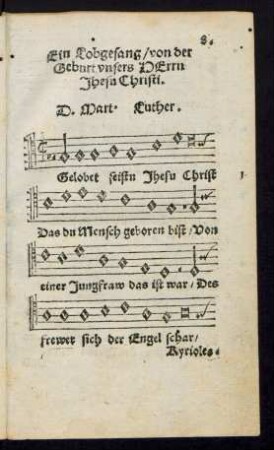 8.
Ein Lobgesang/von der
Geburt vnsers HErrn
Jhesu Christi.
D. Mart. Luther.
Gelobet seistu Jhesu Christ
Das du Mensch geboren bist/Von
einer Jungfraw das ist war/Des
frewet sich der Engel schar/
Kyrioles.